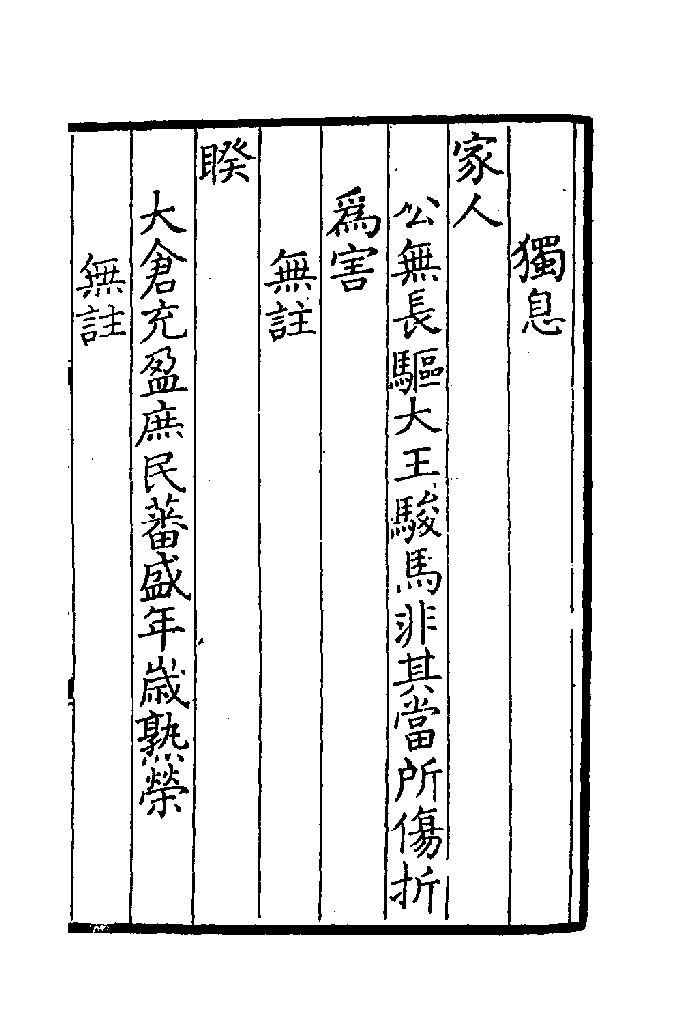 獨息
家人
公無長驅大王駿馬非其當所傷折
為害
無註
睽
大倉充盈庶民蕃盛年歲熟榮
無註